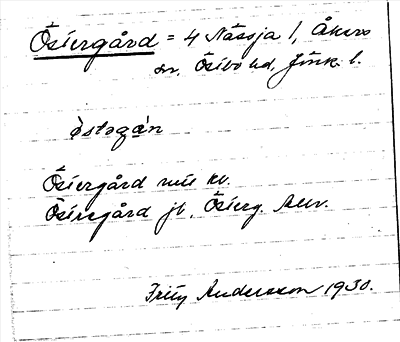 Östergård = 4 Nässja 1, Åkers
sn, Östbo hd, Jönk. l.
östəgán
Östergård mil kv.
Östergård jb, Österg. Aur.
Fritz Andersson 1930.